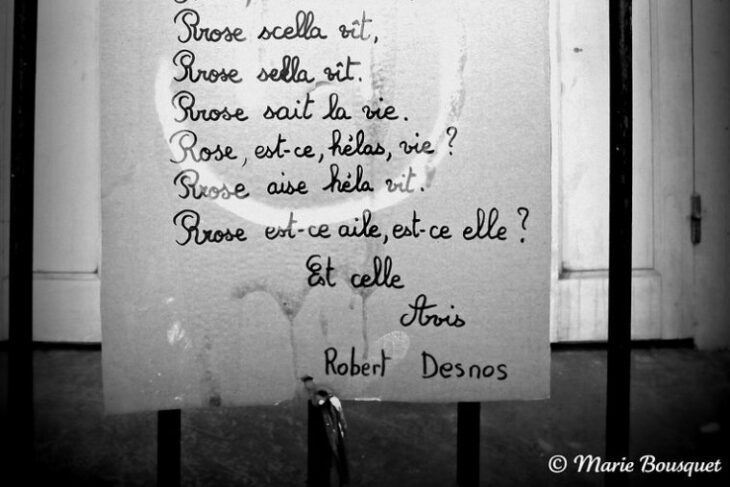 Rrose scella vît,
Rrose sella vît.
Rrose sait la vie.
Rose, est-ce, hélas, vie ?
Rrose aise héla vit.
Rrose est-ce aile, est-ce elle ?
Est celle
Avis
Robert Desnos
© Marie Bousquet